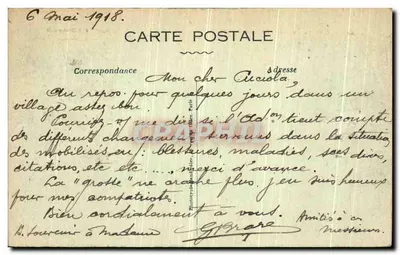 6 Mai 1918.
CARTE POSTALE
Correspondance Adresse
Mon cher Cuciola,
Au repos pour quelques jours, dans un
village assez bon.
Pourriez-v/ me dire si l'Adon tient compte
des différents changements survenus dans la situation
des mobilisés, en : blessures, maladies, sces divers,
citations, etc etc..., merci d'avance.
La "grosse" ne crache plus, j'en suis heureux
pour mes compatriotes.
Bien cordialement à vous. Amitiés à ces
Bt. Souvenir à Madame Messieurs